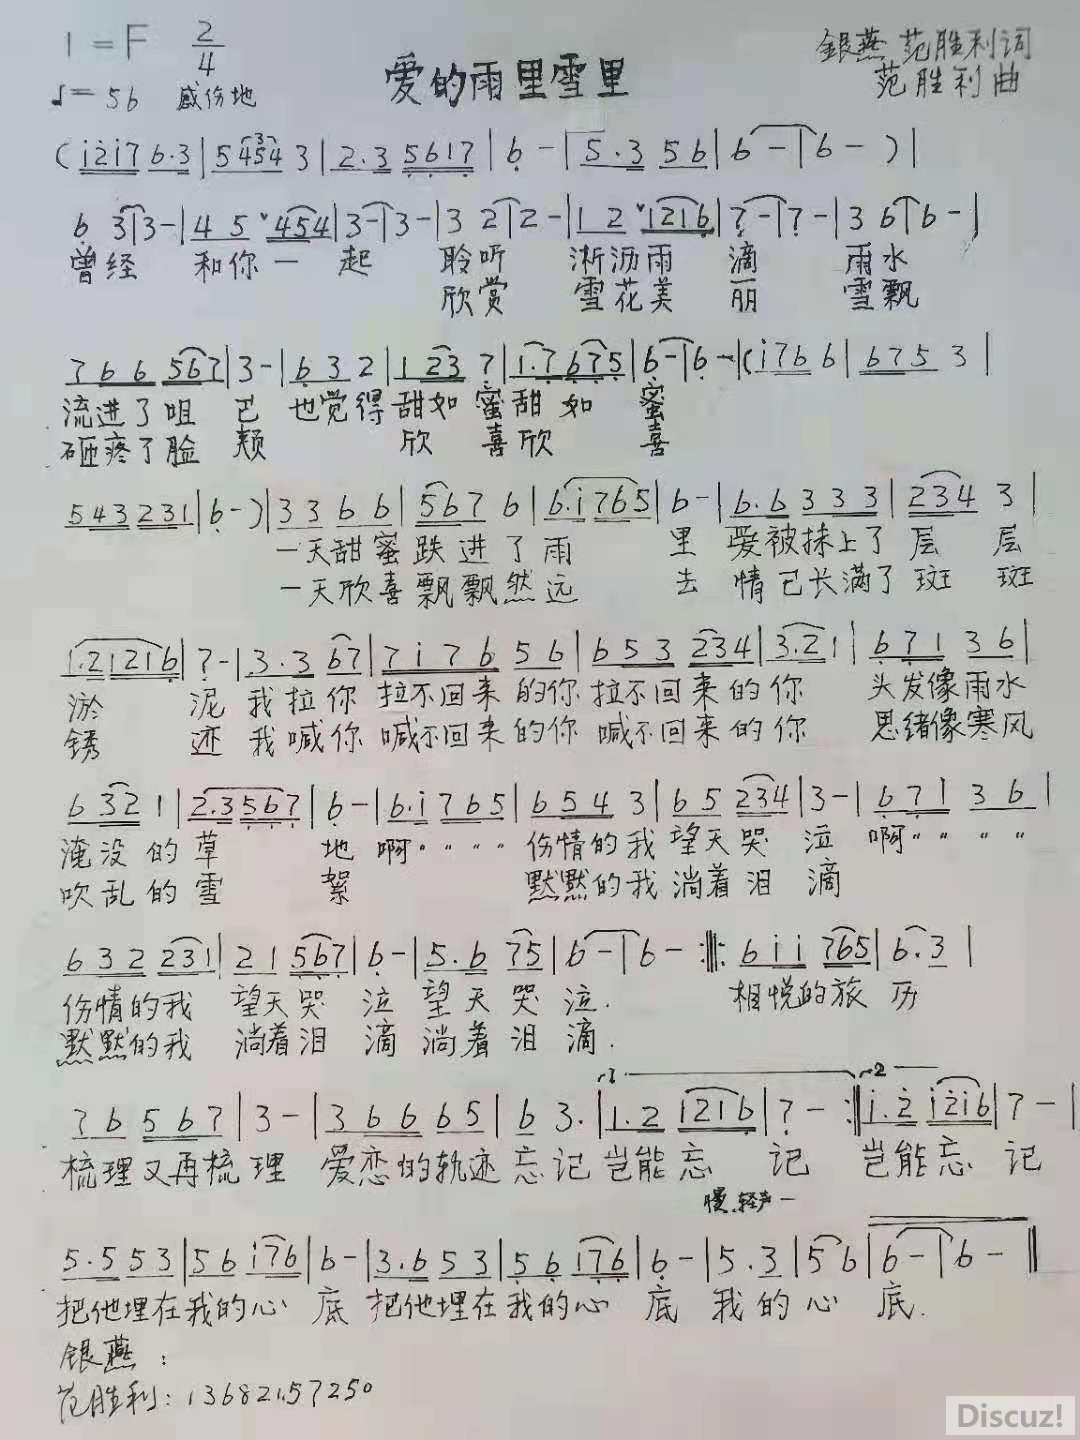 1=F 2/4
爱的雨里雪里
銀燕 范胜利词
♩=56 感伤地
范胜利曲
(i̇2̇i̇7 6·3|5 454 3|2·3 5617|6 -|5·3 56|6 -|6 - )|
6 3|3-|4 5 ˅454|3-|3-|3 2|2-|1 2 ˅1216|7-|7-|3 6|6-|
曾经 和你一 起 聆听 淅沥雨 滴 雨水
欣赏 雪花美 丽 雪飘
7 6 6 567|3-|6 3 2|1 23 7|1·7 675|6-|6-|(i̇76 6|675 3|
流进了咀 巴 也觉得甜如蜜甜如 蜜
砸疼了脸 颊 欣 喜欣 喜
543 231|6-)|33 66|567 6|6·i̇ 765|6-|6·6 333|234 3|
一天甜蜜跌进了雨 里 爱被抹上了层 层
一天欣喜飘飘然远 去 情已长满了斑 斑
1·21216|7-|3·3 67|7i̇76 56|653 234|3·2 1|671 36|
淤 泥 我拉你 拉不回来的你拉不回来的你 头发像雨水
锈 迹 我喊你 喊不回来的你 喊不回来的你 思绪像寒风
6 32 1|2·3567|6-|6·i̇ 765|654 3|65 234|3-|671 36|
淹没的草 地 啊〃〃〃〃 伤情的我 望天哭 泣 啊〃〃〃〃
吹乱的雪 絮 默默的我 淌着泪 滴
632 231|21 567|6-|5·6 75|6-|6- :‖: 6i̇i̇ 765|6·3|
伤情的我 望天哭 泣 望天哭 泣.
相悦的旅 历
默默的我 淌着泪 滴 淌着泪 滴.
1 2
76 567|3-|3666 65|6 3·|1·2 1216|7- :‖i̇·2̇ i̇2̇i̇6|7-|
梳理又再梳理 爱恋的轨迹忘记岂能忘 记 岂能忘 记
慢.轻声一
5·553|56 i̇76|6-|3·653|56 i̇76|6-|5·3|56|6-|6-‖
把他埋在我的心 底 把他埋在我的心 底 我的心 底.
銀燕:
范胜利:13682157250
Discuz!